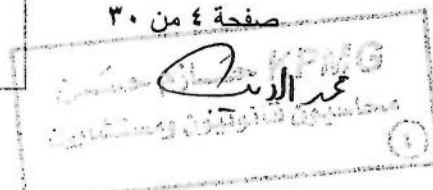 صفحة ٤ من ٣٠
KPMG حازم حسن
محاسبون قانونيون ومستشارون